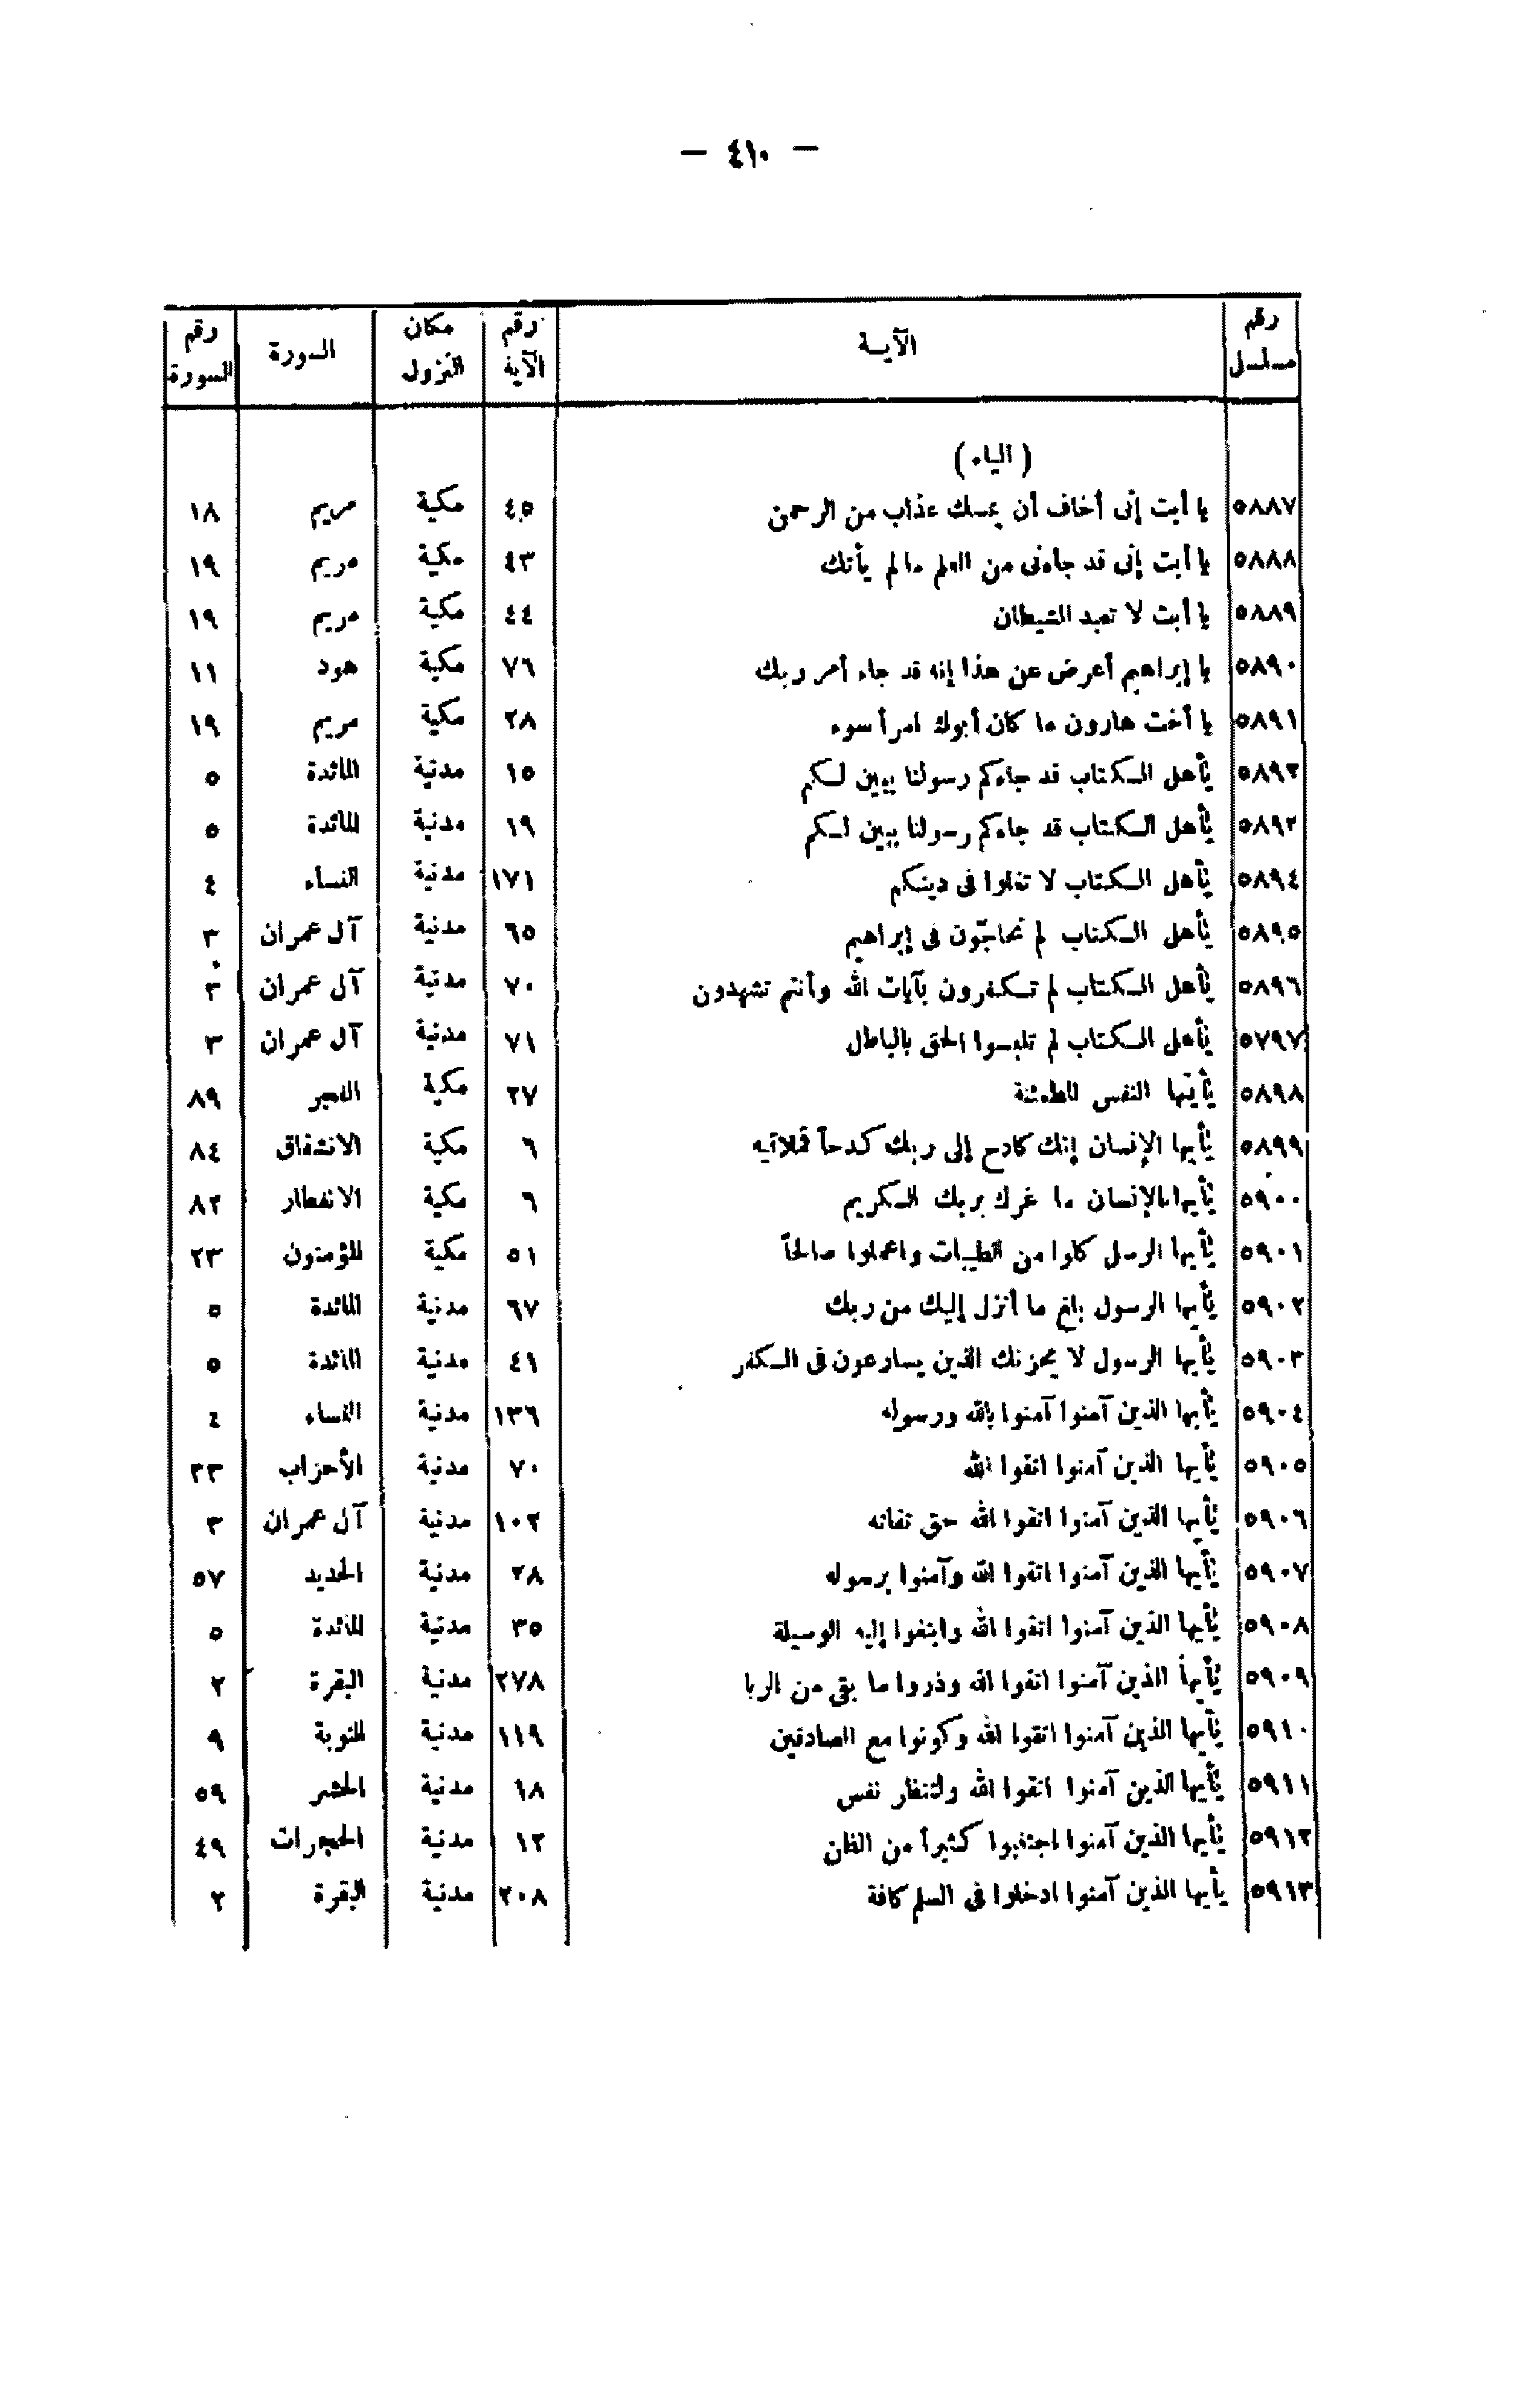 — ٤١٠ —
رقم مسلسل | الآيــة | رقم الآية | مكان النزول | السورة | رقم السورة
( الياء )
٥٨٨٧ | يا أبت إنى أخاف أن يمسك عذاب من الرحمن | ٤٥ | مكية | مريم | ١٨
٥٨٨٨ | يا أبت إنى قد جاءنى من العلم مالم يأتك | ٤٣ | مكية | مريم | ١٩
٥٨٨٩ | يا أبت لا تعبد الشيطان | ٤٤ | مكية | مريم | ١٩
٥٨٩٠ | يا إبراهيم أعرض عن هذا إنه قد جاء أمر ربك | ٧٦ | مكية | هود | ١١
٥٨٩١ | يا أخت هارون ما كان أبوك امرأ سوء | ٢٨ | مكية | مريم | ١٩
٥٨٩٢ | يأهل الكتاب قد جاءكم رسولنا يبين لكم | ١٥ | مدنية | المائدة | ٥
٥٨٩٣ | يأهل الكتاب قد جاءكم رسولنا يبين لكم | ١٩ | مدنية | المائدة | ٥
٥٨٩٤ | يأهل الكتاب لا تغلوا فى دينكم | ١٧١ | مدنية | النساء | ٤
٥٨٩٥ | يأهل الكتاب لم تحاجّون فى إبراهيم | ٦٥ | مدنية | آل عمران | ٣
٥٨٩٦ | يأهل الكتاب لم تكفرون بآيات الله وأنتم تشهدون | ٧٠ | مدنية | آل عمران | ٣
٥٧٩٧ | يأهل الكتاب لم تلبسوا الحق بالباطل | ٧١ | مدنية | آل عمران | ٣
٥٨٩٨ | يأيتها النفس المطمئنة | ٢٧ | مكية | الفجر | ٨٩
٥٨٩٩ | يأيها الإنسان إنك كادح إلى ربك كدحاً فملاقيه | ٦ | مكية | الانشقاق | ٨٤
٥٩٠٠ | يأيها الإنسان ما غرك بربك الكريم | ٦ | مكية | الانفطار | ٨٢
٥٩٠١ | يأيها الرسل كلوا من الطيبات واعملوا صالحاً | ٥١ | مكية | المؤمنون | ٢٣
٥٩٠٢ | يأيها الرسول بلغ ما أنزل إليك من ربك | ٦٧ | مدنية | المائدة | ٥
٥٩٠٣ | يأيها الرسول لا يحزنك الذين يسارعون فى الكفر | ٤١ | مدنية | المائدة | ٥
٥٩٠٤ | يأيها الذين آمنوا آمنوا بالله ورسوله | ١٣٦ | مدنية | النساء | ٤
٥٩٠٥ | يأيها الذين آمنوا اتقوا الله | ٧٠ | مدنية | الأحزاب | ٣٣
٥٩٠٦ | يأيها الذين آمنوا اتقوا الله حق تقاته | ١٠٢ | مدنية | آل عمران | ٣
٥٩٠٧ | يأيها الذين آمنوا اتقوا الله وآمنوا برسوله | ٢٨ | مدنية | الحديد | ٥٧
٥٩٠٨ | يأيها الذين آمنوا اتقوا الله وابتغوا إليه الوسيلة | ٣٥ | مدنية | المائدة | ٥
٥٩٠٩ | يأيها الذين آمنوا اتقوا الله وذروا ما بقى من الربا | ٢٧٨ | مدنية | البقرة | ٢
٥٩١٠ | يأيها الذين آمنوا اتقوا الله وكونوا مع الصادقين | ١١٩ | مدنية | التوبة | ٩
٥٩١١ | يأيها الذين آمنوا اتقوا الله ولتنظر نفس | ١٨ | مدنية | الحشر | ٥٩
٥٩١٢ | يأيها الذين آمنوا اجتنبوا كثيراً من الظن | ١٢ | مدنية | الحجرات | ٤٩
٥٩١٣ | يأيها الذين آمنوا ادخلوا فى السلم كافة | ٢٠٨ | مدنية | البقرة | ٢